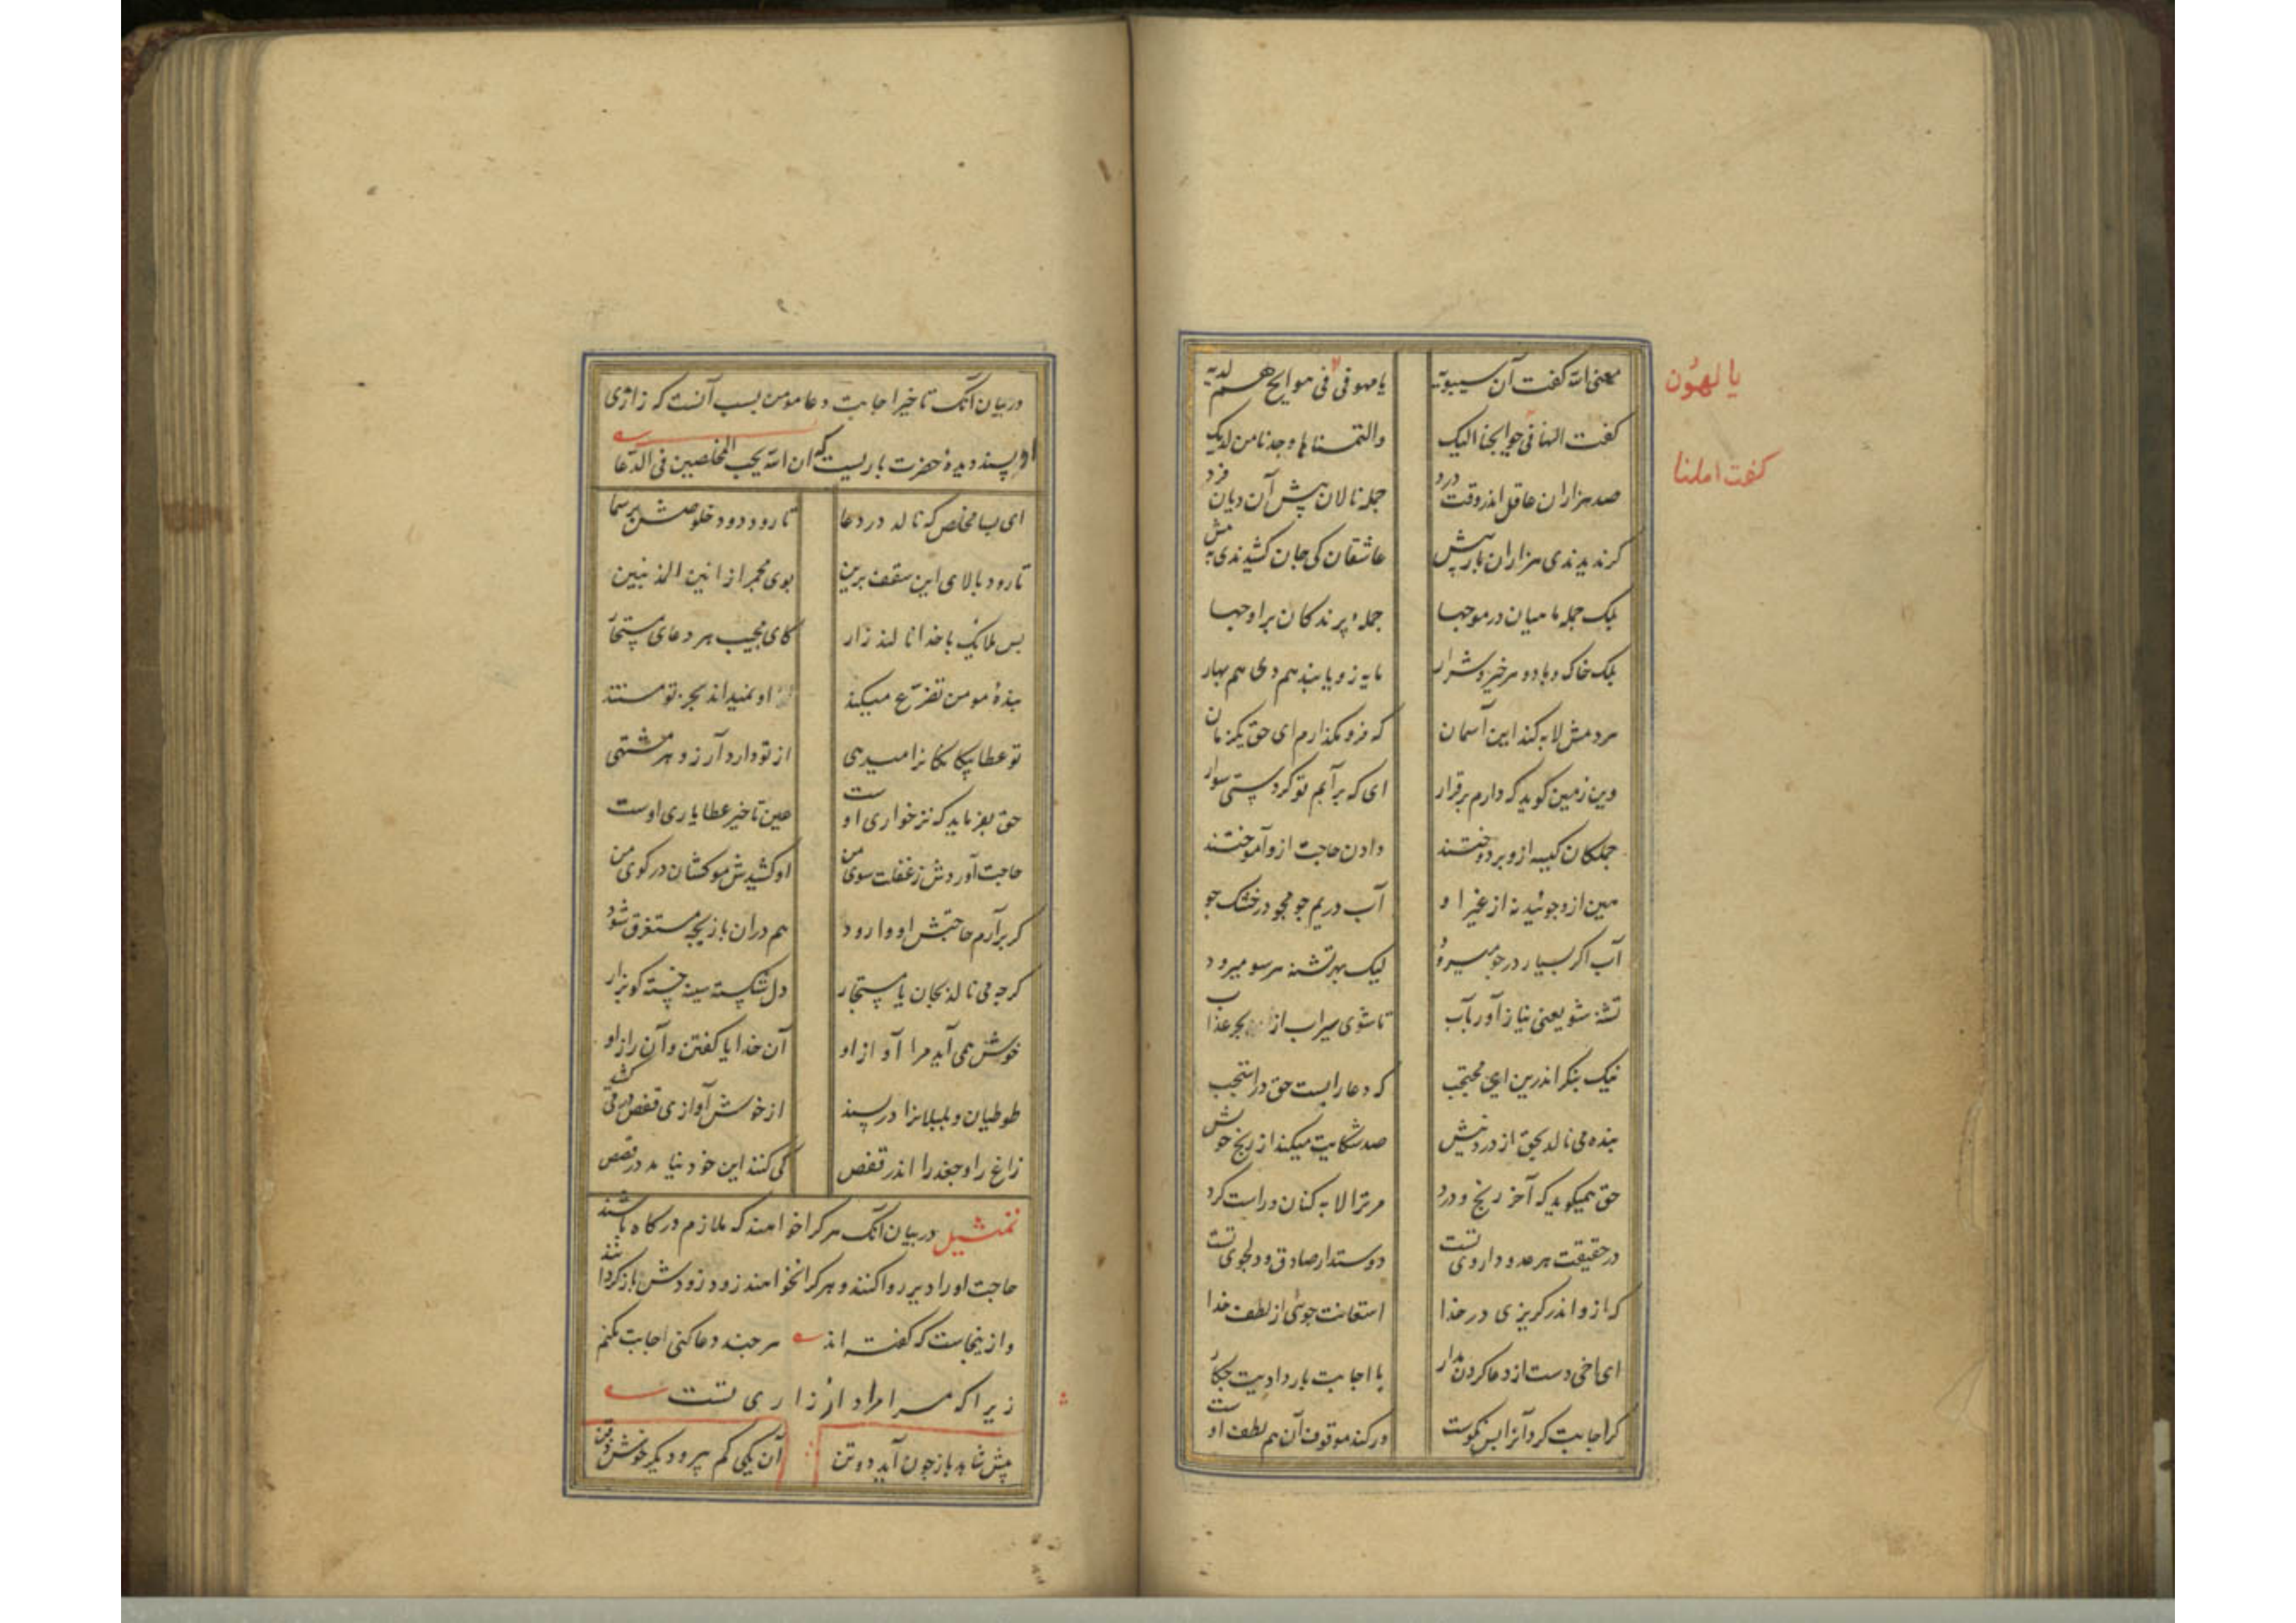 معنی الله گفت آن سیبویه یا مهوفی فی موایح هم لدیه
یالهون
گفت الهنا فی حوایجنا الیک والتمسناها وجدنا من لدیک
گفت املنا
صد هزاران عاقل اندر وقت درد جمله نالان پیش آن دیان فرد
گر ندیدندی هزاران بار پیش عاشقان کی جان کشیدندی به مش
بلک جمله ماهیان در موجها جمله پرندگان بر اوجها
بلک خاک و باد و هر خیز و شرار مایه زو یابند هم دی هم بهار
هر دمش لابه کند این آسمان که فرو مگذارم ای حق یکزمان
وین زمین گوید که دارم برقرار ای که بر آبم تو کردستی سوار
جملگان کیسه ازو بر دوختند دادن حاجت ازو آموختند
هین ازو جوئید نه از غیر او آب در یم جو مجو در خشک جو
آب اگر بسیار در جو میرود لیک بهر تشنه هر سو میرود
تشنه شو یعنی نیاز آور بآب تا شوی سیراب از بحر عذاب
نیک بنگر اندرین ای محتجب که دعا را بست حق در استجب
بنده می نالد بحق از درد نیش صد شکایت میکند از رنج خویش
حق همیگوید که آخر رنج و درد مر ترا لابه کنان و راست کرد
در حقیقت هر عدو داروی تست دوستدار صادق و دلجوی تست
که ازو اندر گریزی در خدا استعانت جوئی از لطف خدا
ای اخی دست از دعا کردن مدار با اجابت یا رد اویت چکار
گر اجابت کرد آنرا بس نکوست ور کند موقوف آن هم لطف اوست
در بیان آنک تاخیر اجابت دعا مومن بسبب آنست که زاری
او پسندیده حضرت باریست که ان الله یحب المخلصین فی الدعا
ای بسا مخلص که نالد در دعا تا رود دود خلوصش بر سما
تا رود بالای این سقف برین بوی مجمر از انین المذنبین
پس ملایک با خدا نالند زار کای مجیب هر دعای مستجار
بنده مومن تضرع میکند او نمیداند بجز تو مستند
تو عطا بیگانگانرا میدهی از تو دارد آرزو هر مشتهی
حق بفرماید که نز خواری اوست عین تاخیر عطا یاری اوست
حاجت آوردش ز غفلت سوی من او کشیدش مو کشان در کوی من
گر برآرم حاجتش او وا رود هم در آن بازیچه مستغرق شود
گرچه می نالد بجان یا مستجار دل شکسته سینه خسته گو بزار
خوش همی آید مرا آواز او آن خدایا گفتن و آن راز او
طوطیان و بلبلانرا در پسند از خوش آوازی قفص در می کشند
زاغ را و جغد را اندر قفص کی کنند این خود نیامد در قصص
تمثیل در بیان آنک هر کرا خواهند که ملازم درگاه باشند
حاجت او را دیر روا کنند و هر کرا نخواهند زود زودش بازگردانند
و ازینجاست که گفته اند هر چند دعا کنی اجابت نکنم
زیرا که مرا مراد از زاری تست
پیش شاهد باز چون آید دو تن آن یکی کمپیر و دیگر خوش ذقن